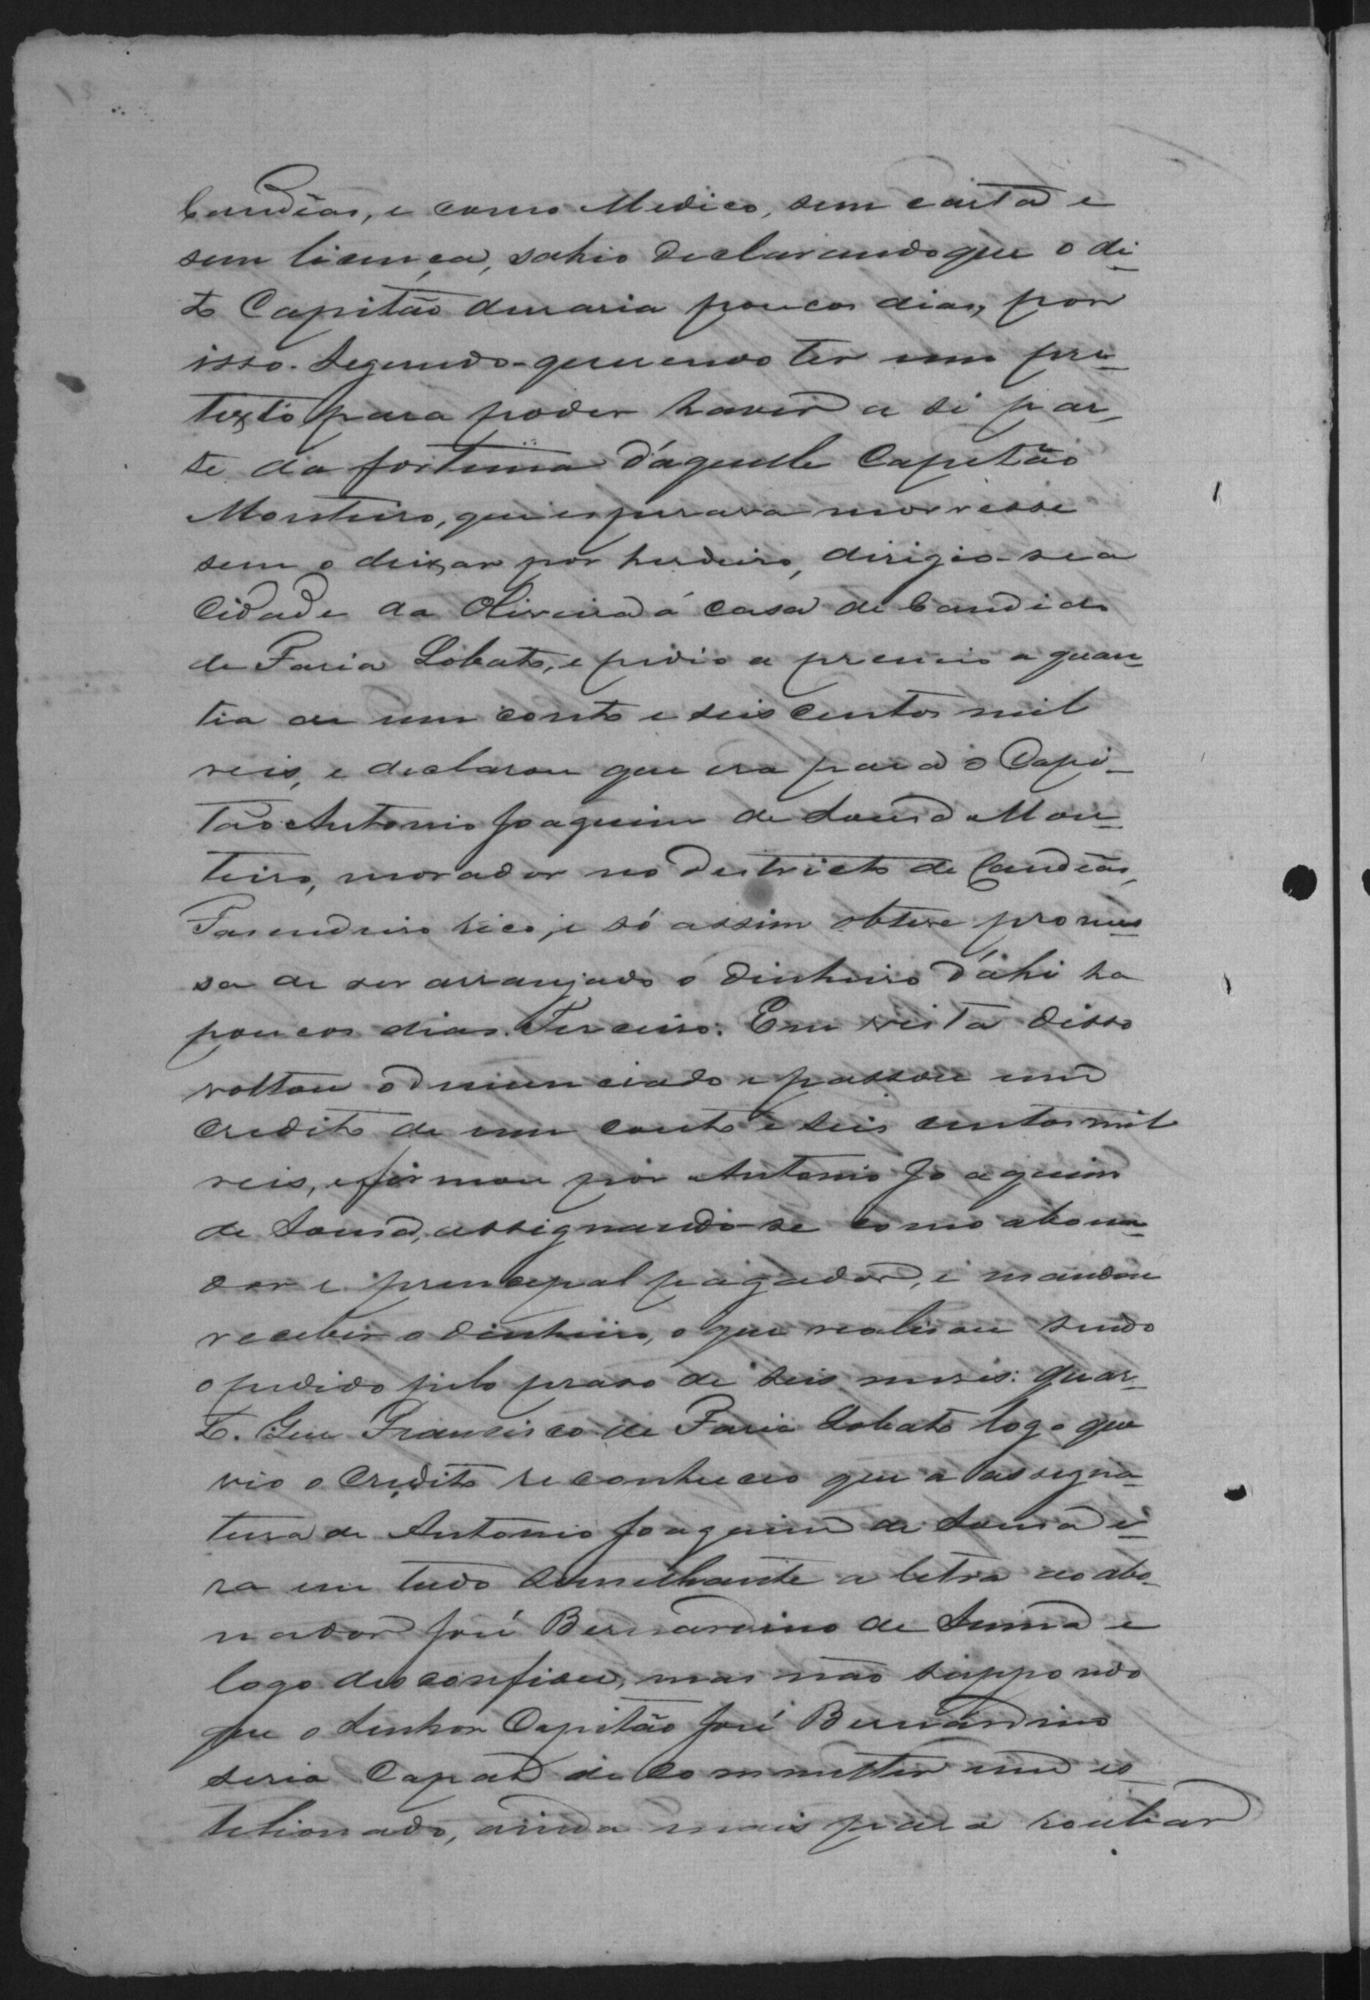 Candêas, e como Medico, sem carta e
sem licença, sahio declarando que o di-
to Capitão duraria poucos dias, por
isso. Segundo - querendo ter um pre-
texto para poder haver a si par-
te da fortuna d'aquelle Capitão
Monteiro, que esperava morresse
sem o deixar por herdeiro, dirigio-se a
Cidade da Oliveira á casa de Candido
de Faria Lobato, e pedio a premio a quan-
tia de um conto e seis centos mil
reis, e declarou que era para o Capi-
tão Antonio Joaquim de Sousa Mon-
teiro, morador no Destricto de Candêas,
Fasendeiro rico, e só assim obteve promes-
sa de ser arranjado o dinheiro d'áhi ha
poucos dias. Terceiro: Em vista disso
voltou o denunciado e passou um
credito de um conto e seis centos mil
reis, e firmou por Antonio Joaquim
de Sousa, assignando-se como abona-
dor e principal pagador, e mandou
receber o dinheiro, o que realisou sendo
o pedido pelo praso de seis meses: Quar-
to. Que Francisco de Faria Lobato logo que
vio o credito reconheceo que a assigna-
tura de Antonio Joaquim de Sousa é-
ra em tudo semelhante a letra do abo-
nador José Bernardino de Sousa e
logo desconfiou, mas não suppondo
que o Senhor Capitão José Bernardino
seria capaz de commetter um es-
telionado, ainda mais para roubar